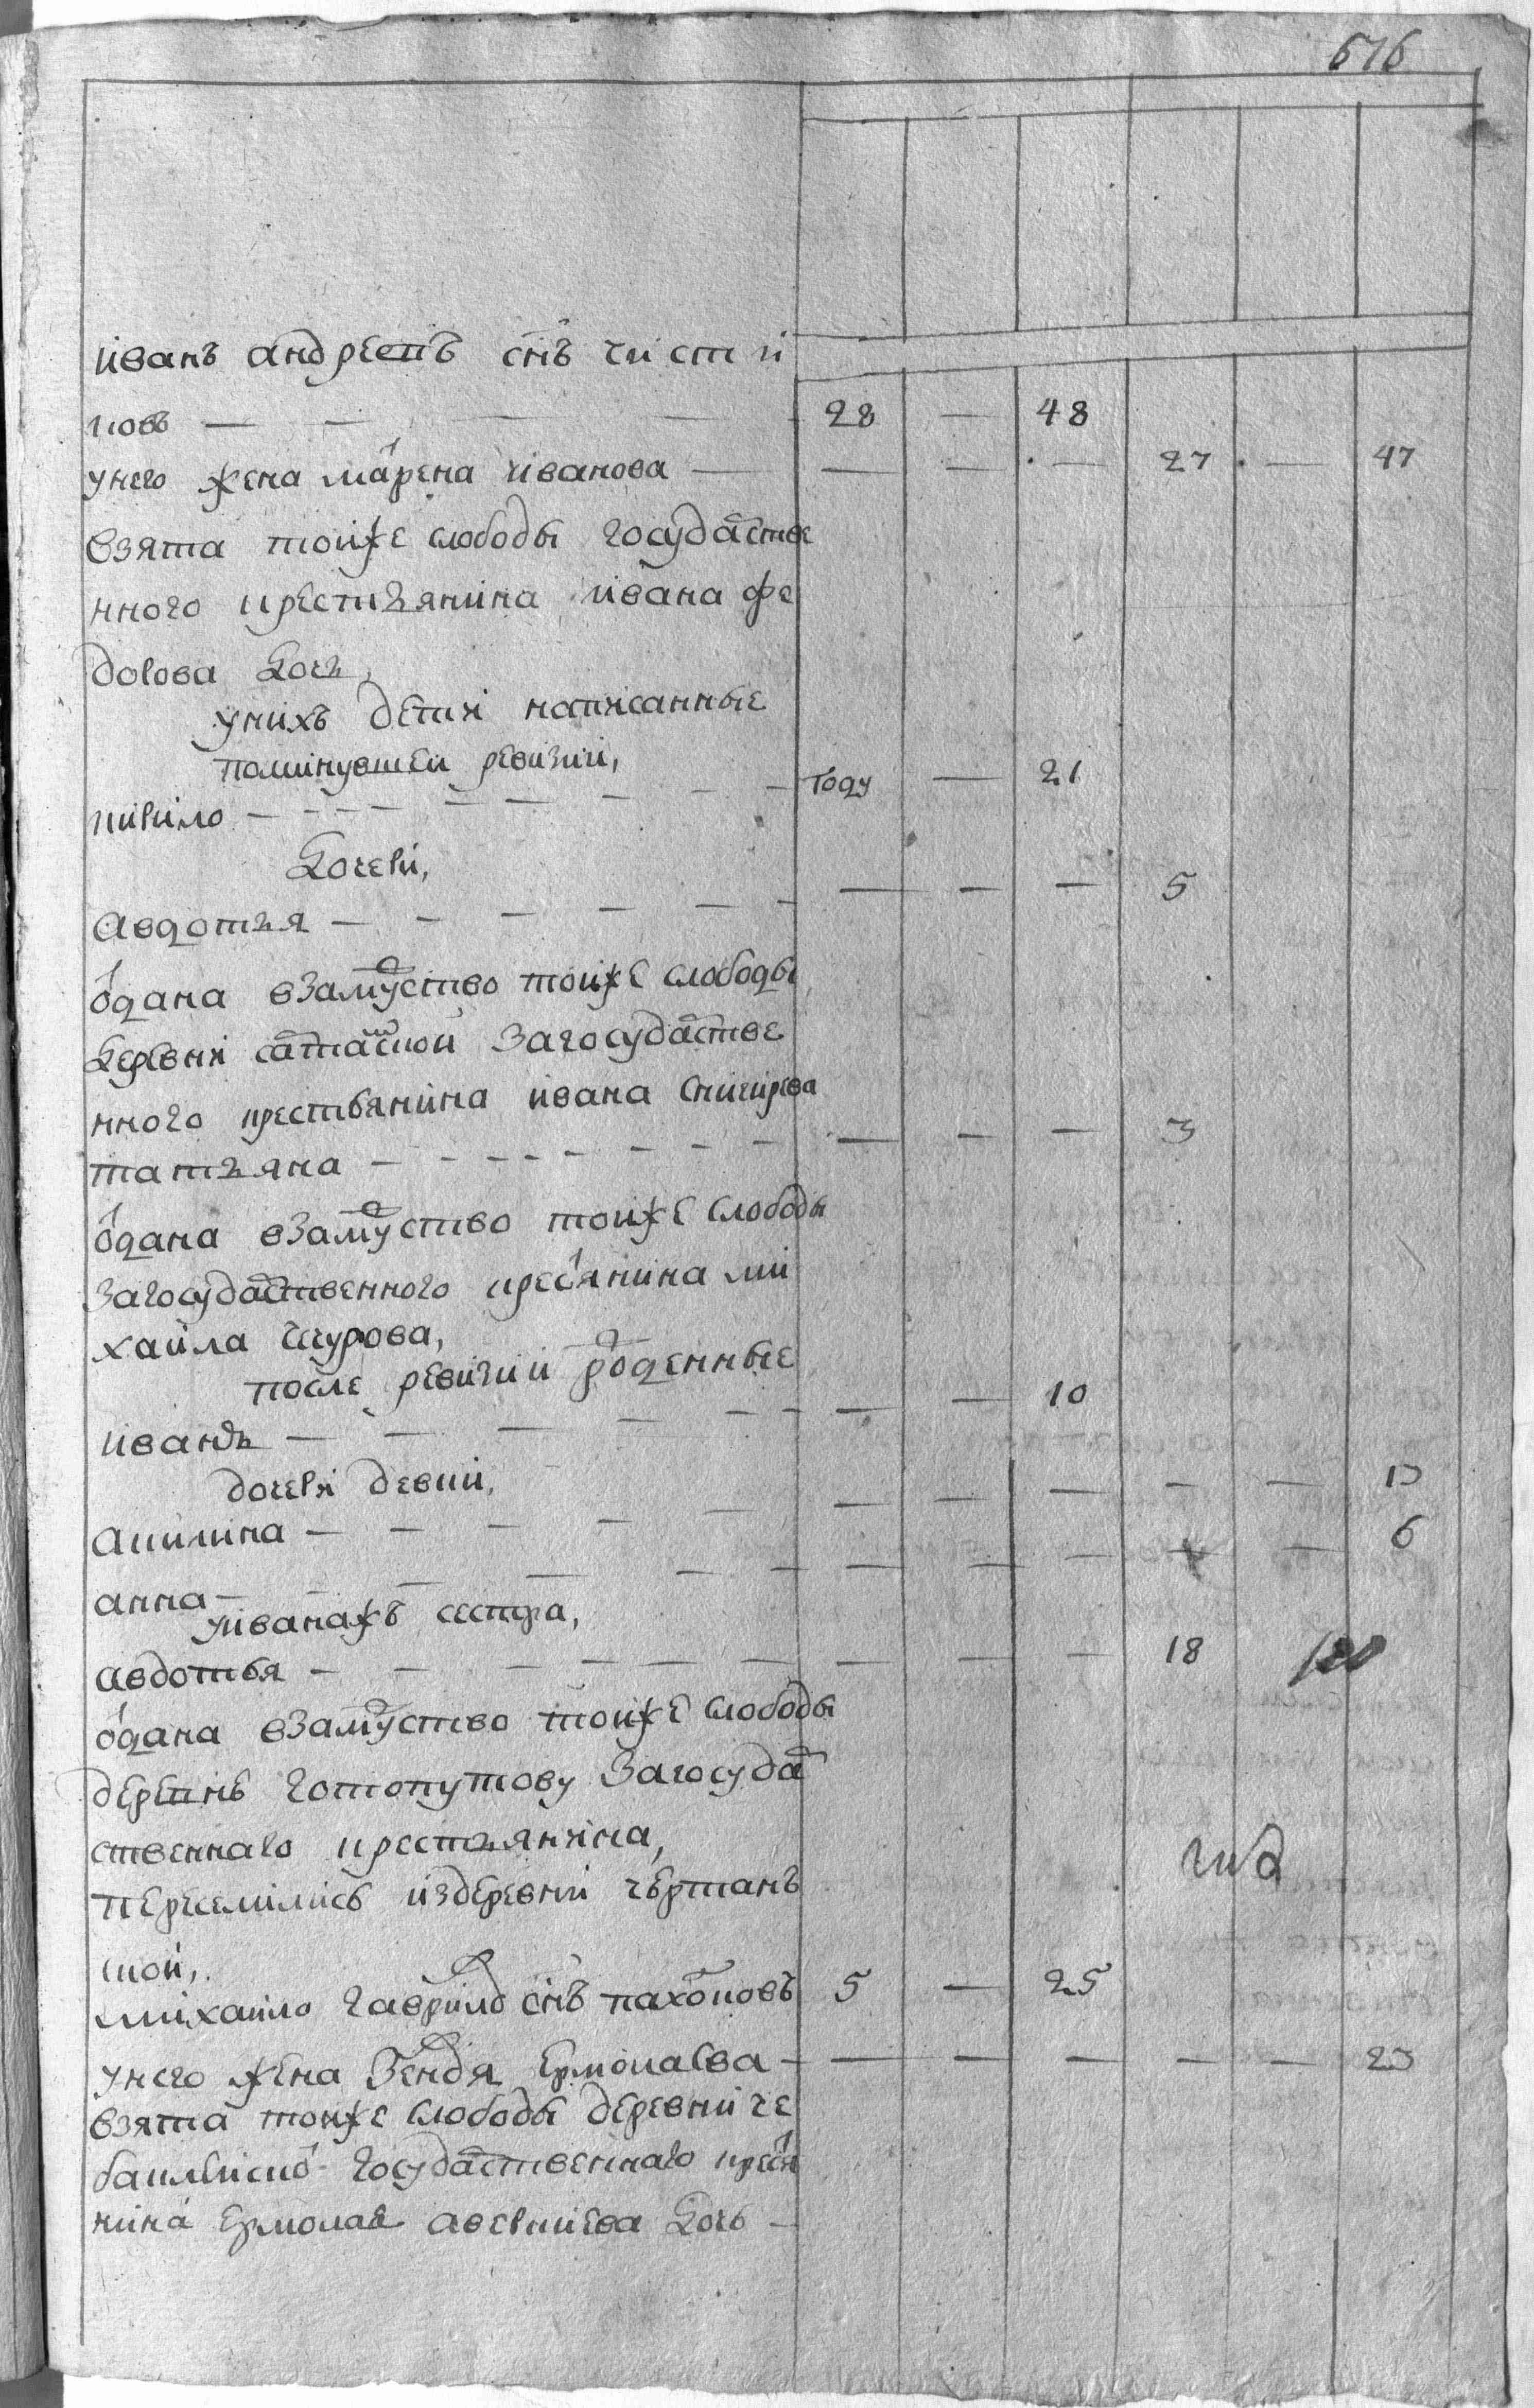 616
иванъ андреевъ снъ чисти
ковъ — — — — 28 — 48
унего жена марена иванова — — — — 27 — 47
взята тойже слободы государстве
нного крестьянина ивана фе
дотова дочь,
унихъ дети написанные
поминувшей ревизии,
кирило — — — — году — 21
дочери,
авдотья — — — — — — — 5
одана взамуство тойже слободы
деревни загосударстве
нного крестьянина ивана снигирева
татьяна — — — — — — — 3
одана взамуство тойже слободы
загосударственного кресянина ми
хаила щурова,
после ревизии роденные
иванъ — — — — — 10
дочери девки,
акилина — — — — — — — — — 13
анна — — — — — — — — 6
уиванажъ сестра,
авдотья — — — — — — — 18 120
одана взамуство тойже слободы
деревнѣ готопутову загосудар
ственнаго крестьянина,
переселились издеревни чертанъ
ской,
михайло гаврило снъ пахомовъ 5 — 25
унего жена ермолаева — — — — — — 23
взята тойже слободы деревни че
государственнаго кресья
нина ермолая дочь —